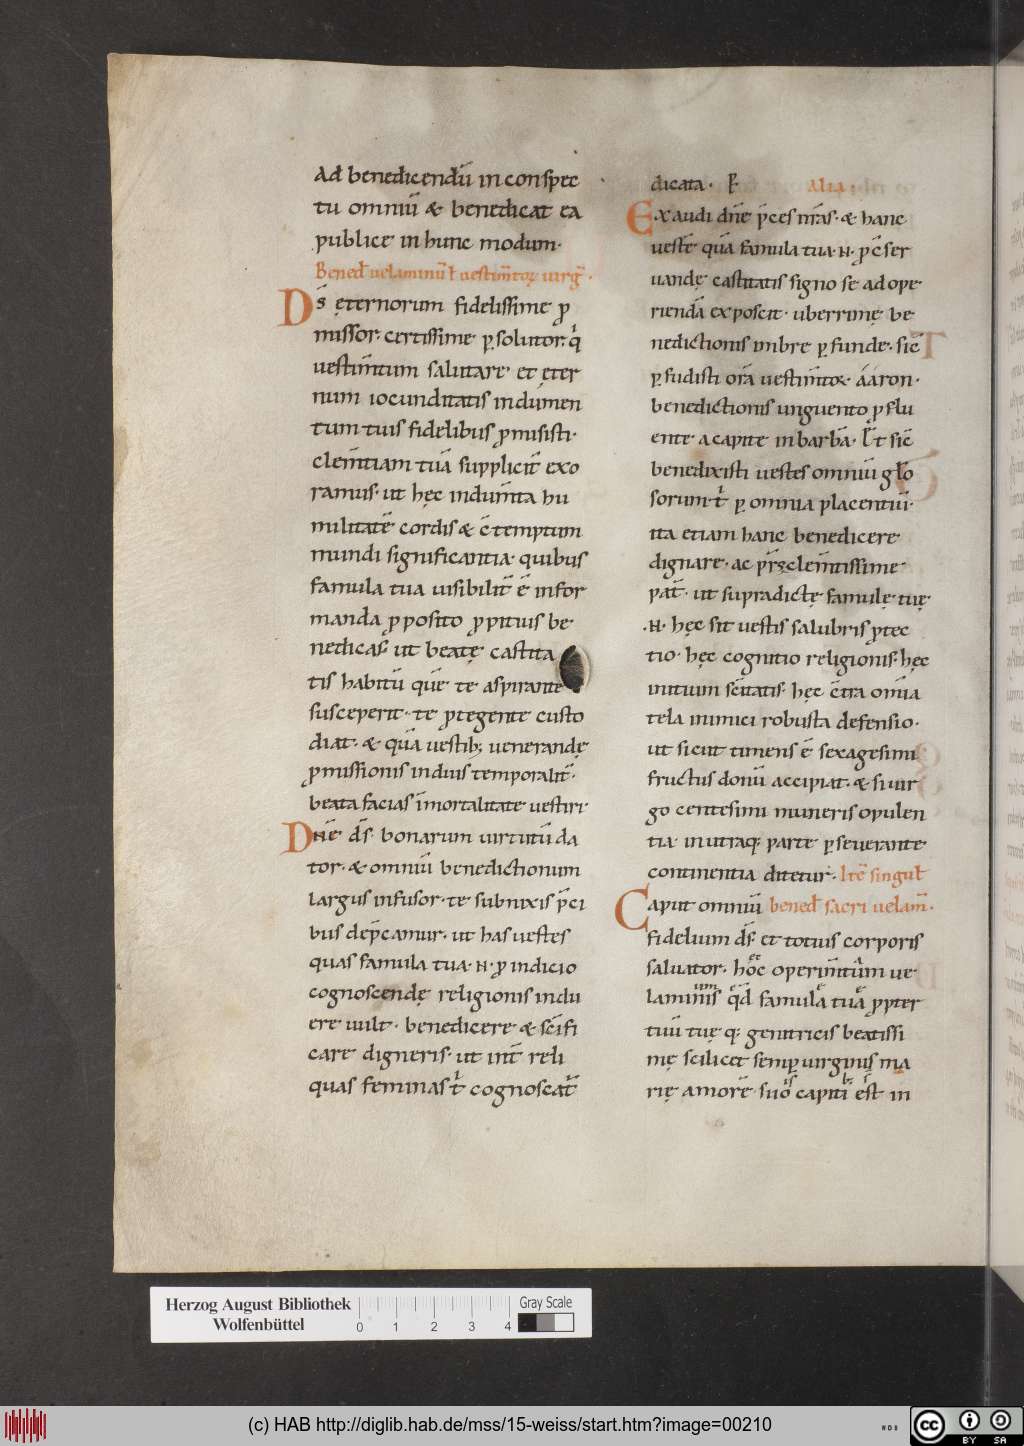 Ad benedicendū in conspec
tu omniū & benedicat ea
publice in hunc modum·
Bened̄ uelaminū ł uestim̄toꝝ uirḡ·
Ds̄ ęternorum fidelissime ꝓ
missor· certissime ꝑsolutor· q͛
uestim̄tum salutare· et ęter
num iocunditatis indumen
tum tuis fidelibus ꝓmisisti·
clem̄tiam tuā suppliciť exo
ramus· ut hęc indum̄ta hu
militatē cordis & c̄temptum
mundi significantia· quibus
famula tua uisibiliť ē infor
manda ꝓposito ꝓpitius be
nedicas· ut beatę castita
tis habitū quē te aspirante
susceperit· te ꝓtegente custo
diat· & quā uestib; uenerandę
ꝓmissionis induis temporaliť·
beata facias īmortalitate uestiri·
Dn̄e ds̄ bonarum uirtutū da
tor· & omniū benedictionum
largus infusor· te subnixis p̄ci
bus dep̄camur· ut has uestes
quas famula tua· N· ꝓ indicio
cognoscendę religionis indu
ere uult· benedicere & sc̄ifi
care digneris· ut int̄ reli
quas feminas t͛ cognoscat͛
dicata· P̄·
Alia·
Exaudi dn̄e p̄ces nr̄as· & hanc
uestē quā famula tua· N· ꝓ c̄ser
uandę castitatis signo se adope
riendā exposcit· uberrimę be
nedictionis imbre ꝑfunde· sic̄
ꝑfudisti orā uestim̄toꝝ· ááron·
benedictionis unguento ꝓflu
ente· a capite in barbā· Et sic̄
benedixisti uestes omniū głio
sorum· t͛ ꝑ omnia placentiū·
ita etiam hanc benedicere
dignare· ac pr̄s clem̄tissime
pať· ut supradictę famulę tuę·
·N· hęc sit uestis salubris ꝓtec
tio· hęc cognitio religionis· hęc
initium sc̄itatis· hęc c̄tra om̄ia
tela inimici robusta defensio·
ut sicut timens ē sexagesimi
fructus donū accipiat· & si uir
go centesimi muneris opulen
tia· in utraq; parte ꝑseuerante
continentia ditetur· Itē singuł
Caput omniū bened̄ sacri uelam̄·
fidelium ds̄· et totius corporis
saluator· hoc operim̄tum ue
laminis qd̄ famula tua ꝓpter
tuū tuę q; genitricis beatissi
mę scilicet semꝑ uirginis ma
rię amorē suo capiti est in
Herzog August Bibliothek
Wolfenbüttel
0 1 2 3 4
Gray Scale
(c) HAB http://diglib.hab.de/mss/15-weiss/start.htm?image=00210
WDB
cc BY SA